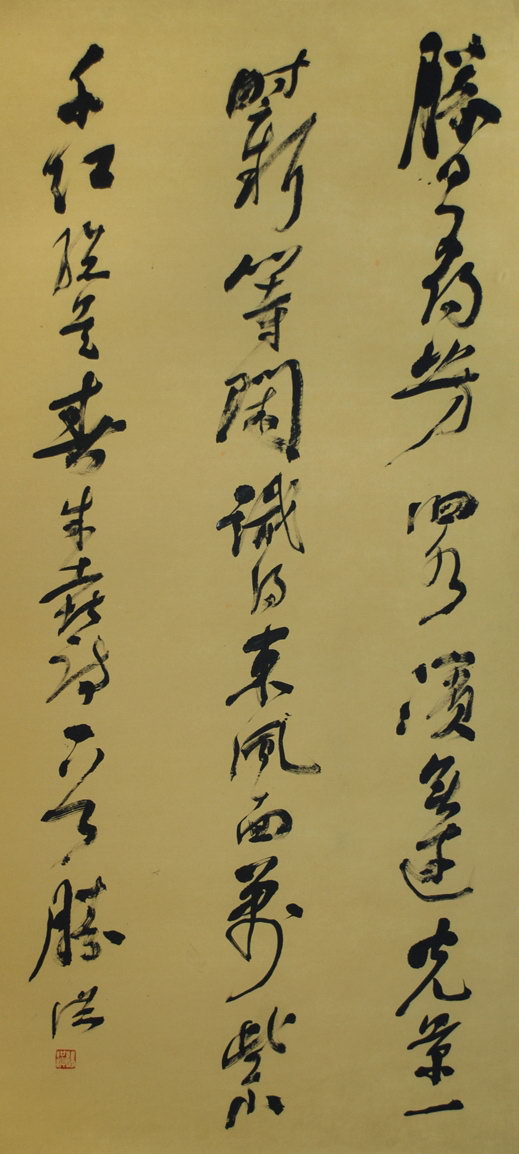 勝日尋芳泗水濱無邊光景一
時新等閑識得東風面萬紫
千紅總是春朱熹詩勝洪